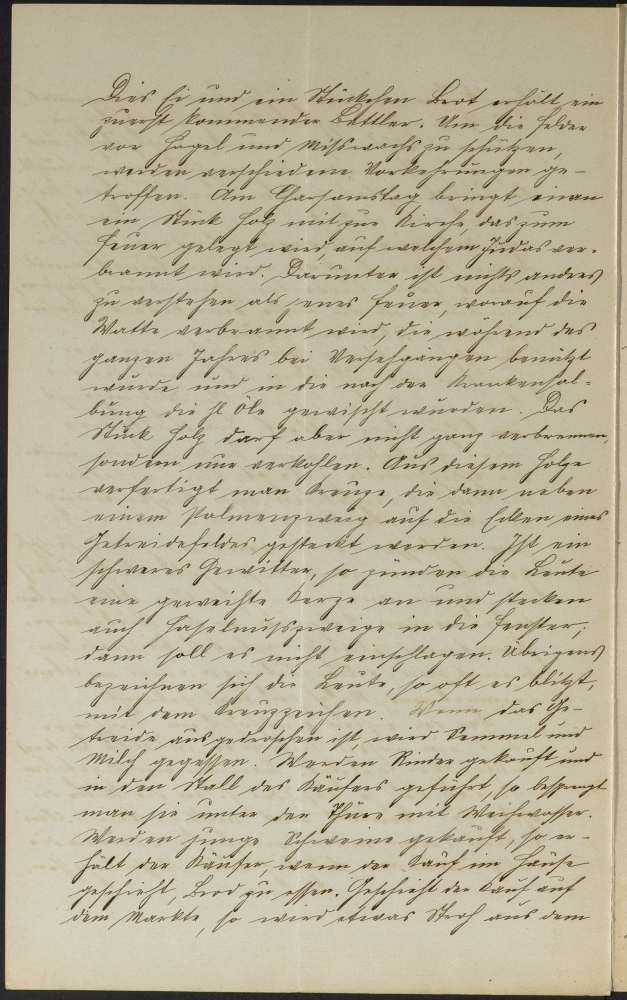 Dies Ei und ein Stückchen Brot erhält ein
zuerst kommender Bettler. Um die Felder
vor Hagel und Misswachs zu schützen,
werden verschiedene Vorkehrungen ge-
troffen. Am Charsamstag bringt man
ein Stück Holz mit zur Kirche, das zum
Feuer gelegt wird, auf welchem Judas ver-
brannt wird. Darunter ist nichts anders
zu verstehen als jenes Feuer, worauf die
Watte verbrannt wird, die während des
ganzen Jahres bei Versehgängen benützt
wurde und in die nach der Krankensal-
bung die hl Öle gewischt wurden. Das
Stück Holz darf aber nicht ganz verbrennen,
sondern nur verkohlen. Aus diesem Holze
verfertigt man Kreuze, die dann neben
einem Palmenzweig auf die Ecken eines
Getreidefeldes gesteckt werden. Ist ein
schweres Gewitter, so zünden die Leute
eine geweihte Kerze an und stecken
auch Haselnusszweige in die Fenster;
dann soll es nicht einschlagen. Übrigens
bezeichnen sich die Leute, so oft es blitzt,
mit dem Kreuzzeichen. Wenn das Ge-
treide ausgedroschen ist, wird Semmel und
Milch gegessen. Werden Rinder gekauft und
in den Stall des Käufers geführt, so besprengt
man sie unter der Thüre mit Weihwasser.
Werden junge Schweine gekauft, so er-
hält der Käufer, wenn der Kauf im Hause
geschieht, Brod zu essen. Geschieht der Kauf auf
dem Markte, so wird etwas Stroh aus dem